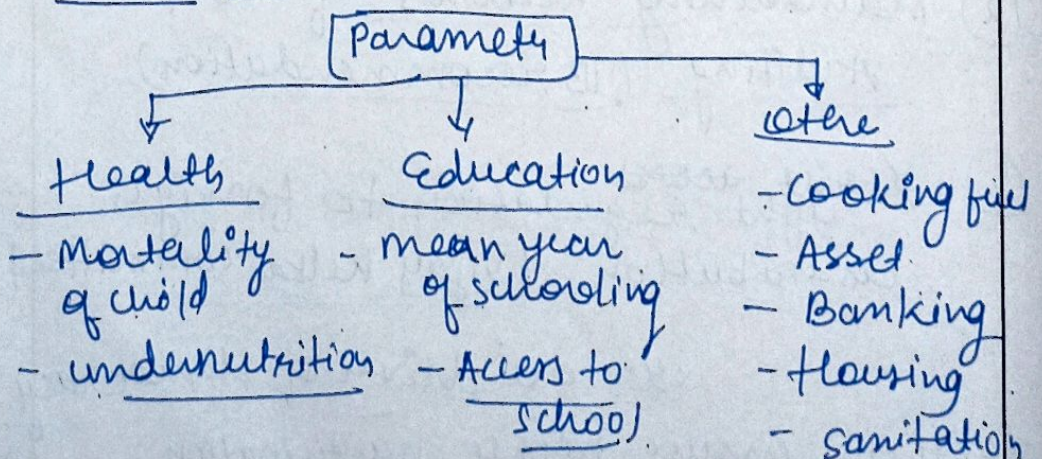 Parameter
Health
- Mortality
of child
- undernutrition
Education
- mean year
of schooling
- Access to
school
Othe
- Cooking fuel
- Asset
- Banking
- Housing
- sanitation